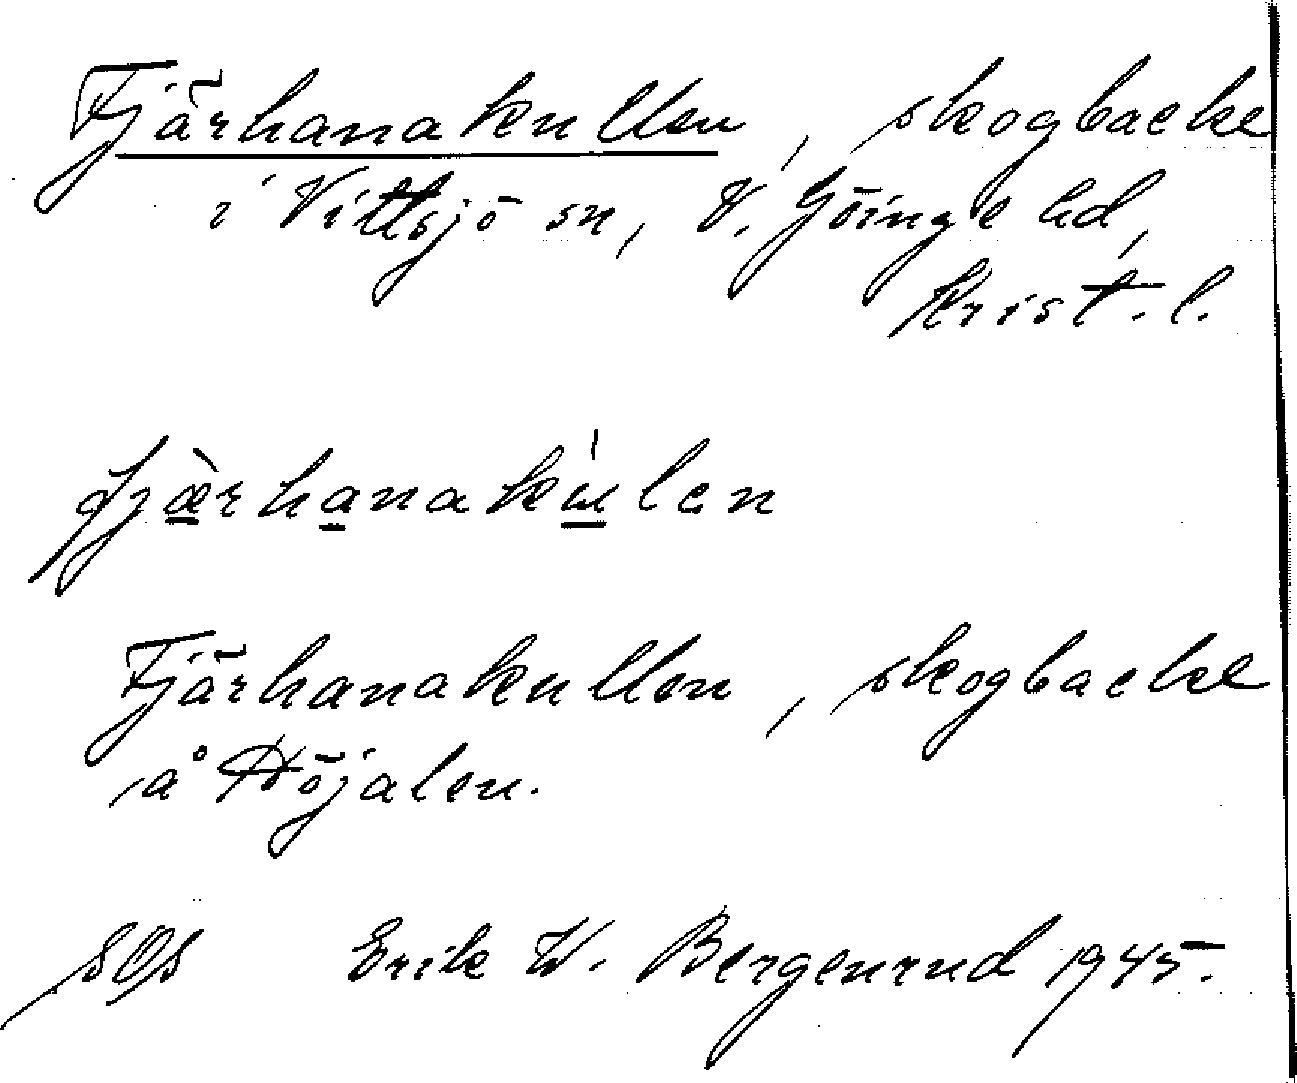 Fjärhanakullen, skogbacke
i Vittsjö sn, V. Göinge hd,
Krist. l.
fjæ̀rhanakúlen
Fjärhanakullen, skogbacke
å Höjalen.
SOS Erik W. Bergenrud 1945.